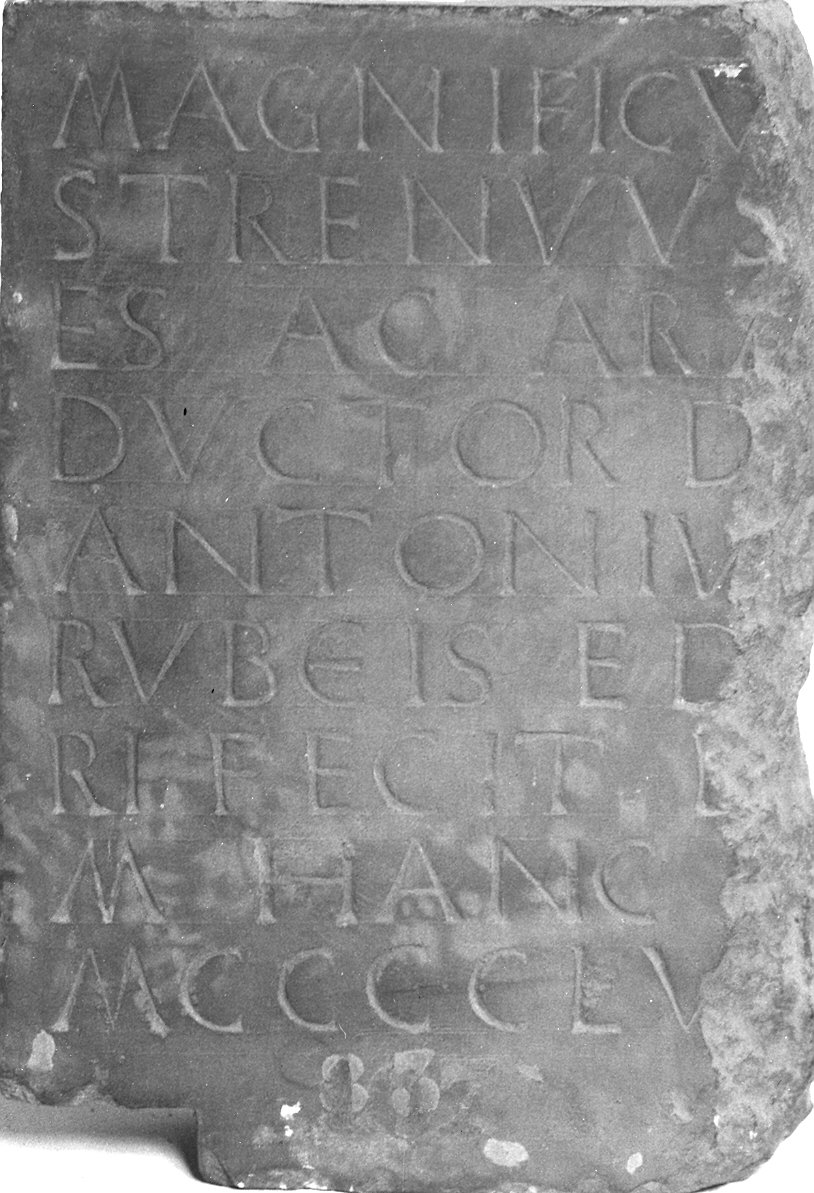 MAGNIFICV
STRENVVS
ES AC AR
DVCTOR D
ANTONIV
RVBEIS ED
RI FECIT L
M HANC
MCCCCLV